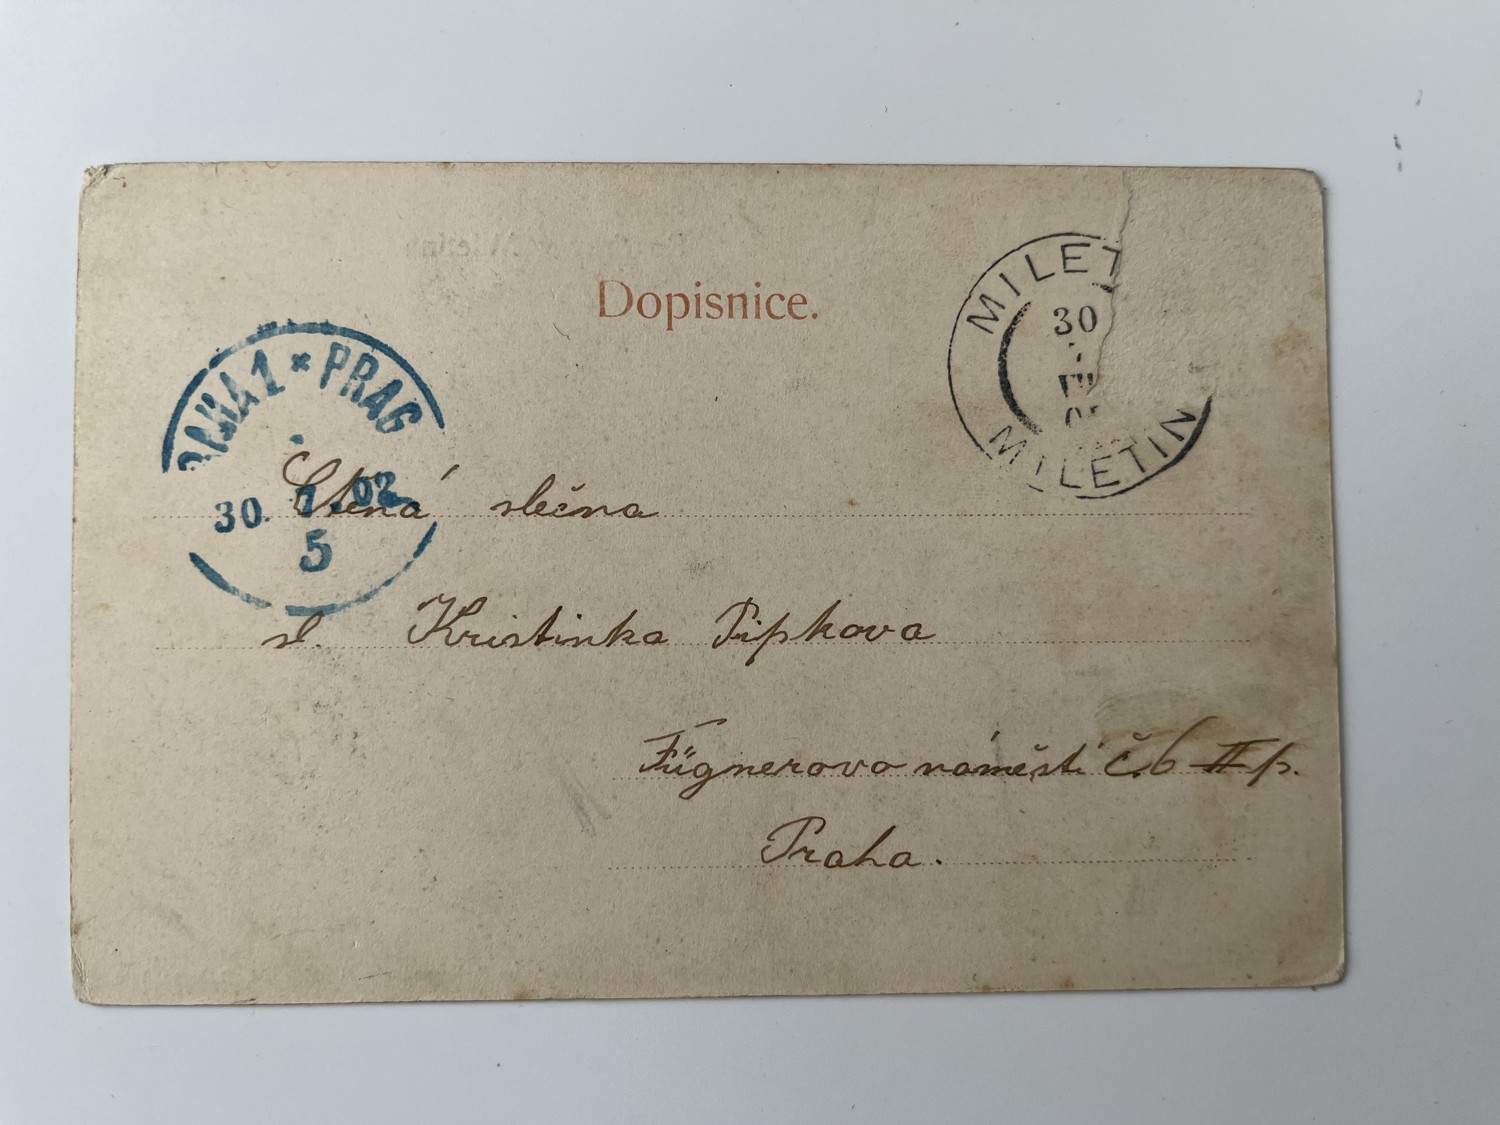 Dopisnice.
MILET
30
VII
MILETIN
PRAHA 1 * PRAG
30. 7. 02
5
Ctěná slečna
sl. Kristinka Pipkova
Fügnerovo náměstí č. 6 II p.
Praha.